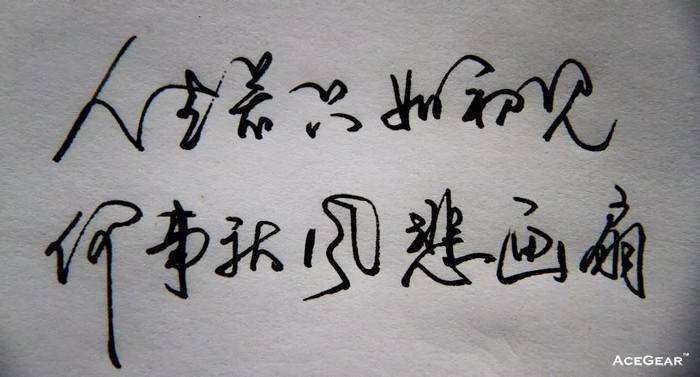 人生若只如初见
何事秋风悲画扇
ACEGEAR™